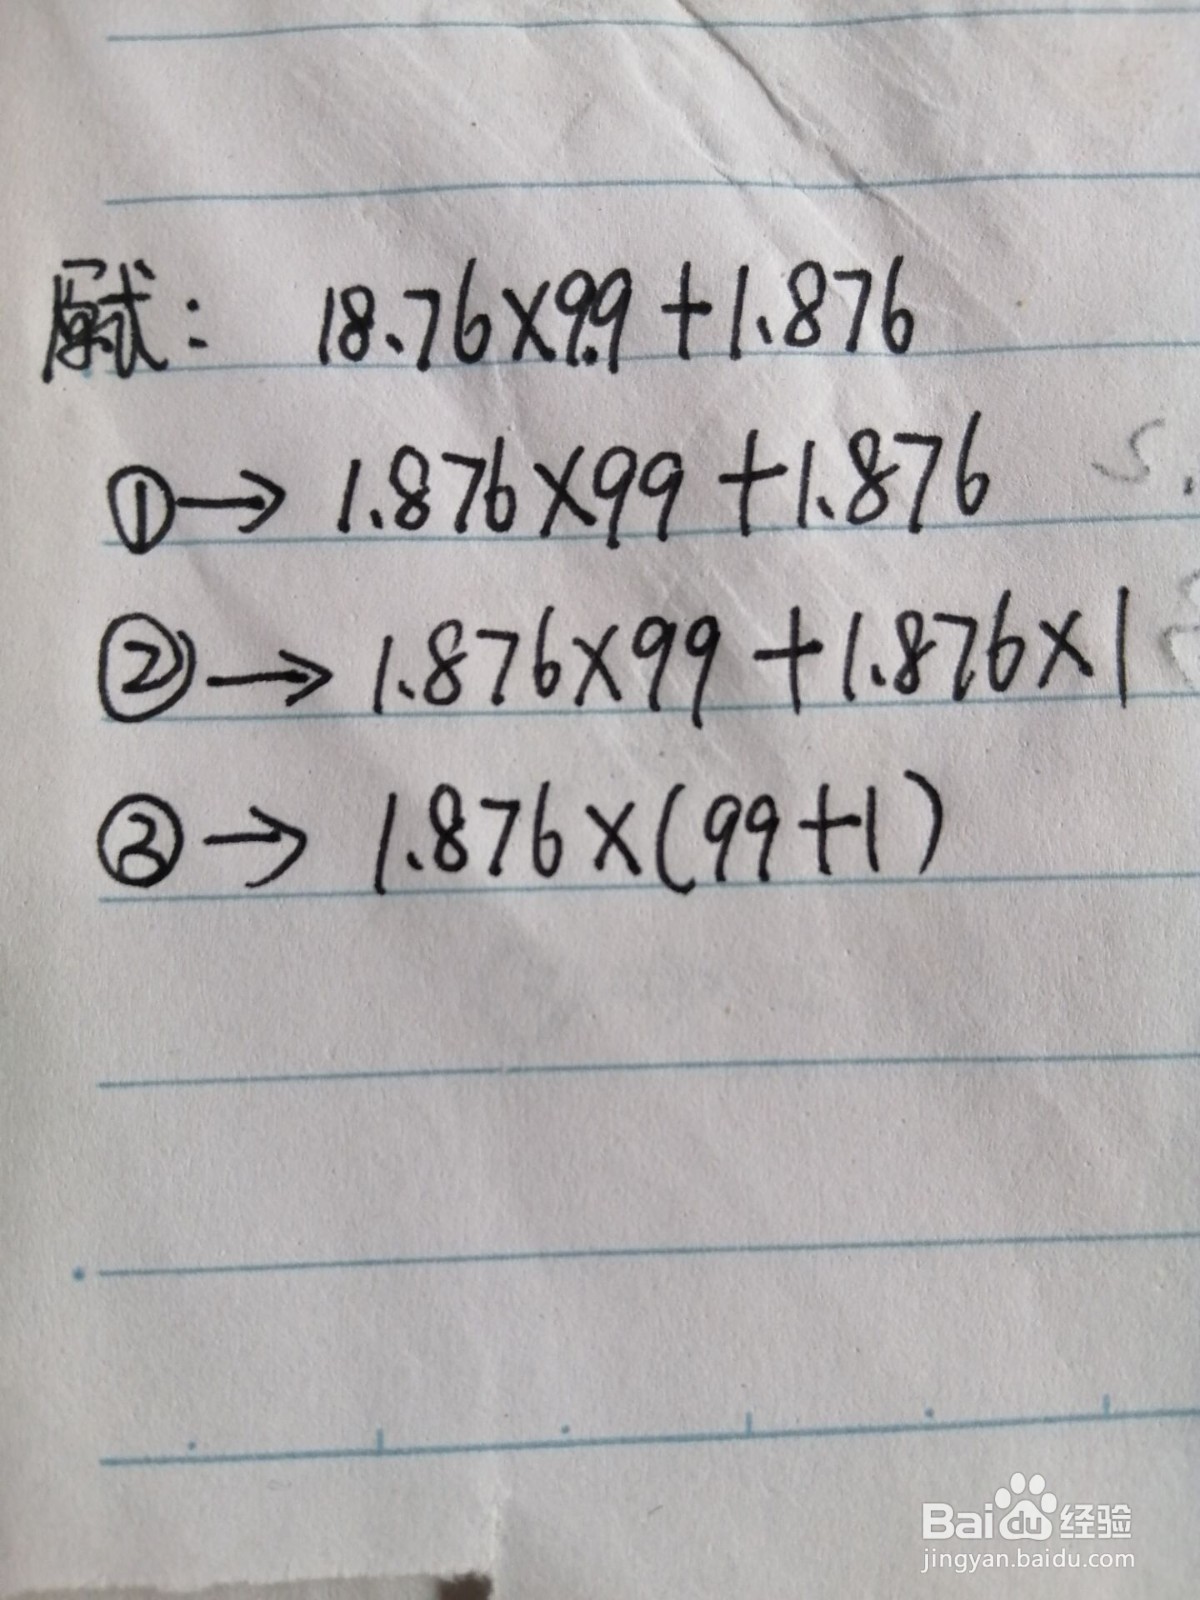 原式: 18.76×9.9+1.876
①→ 1.876×99+1.876
②→ 1.876×99+1.876×1
③→ 1.876×(99+1)
Baidu经验
jingyan.baidu.com